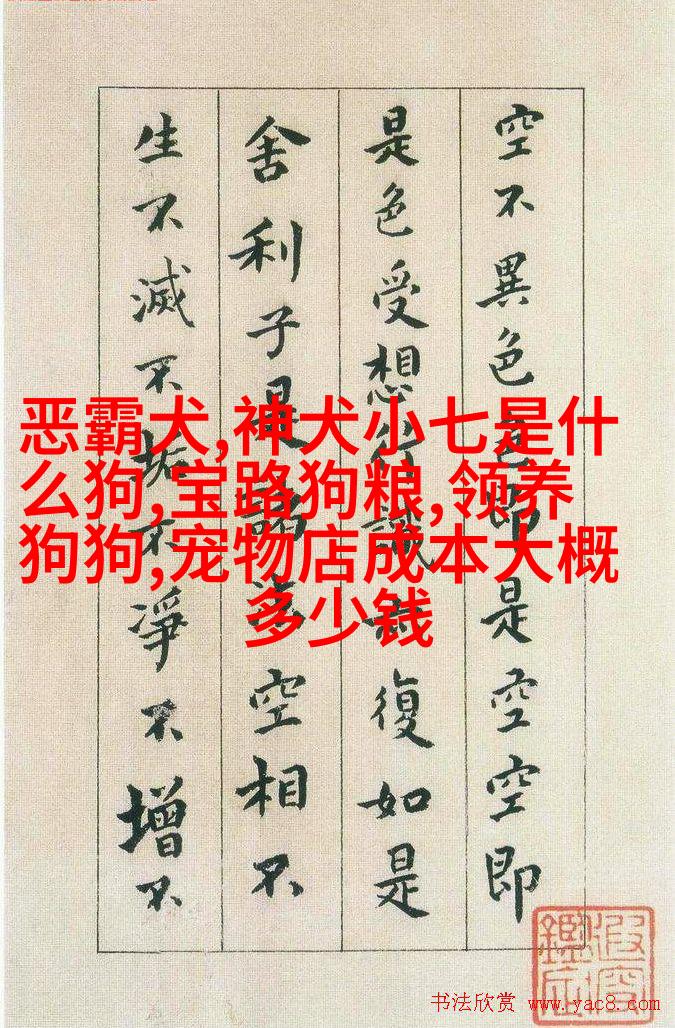 空不異色色即是空空即
是色受想行識亦復如是
舍利子是諸法空相不
生不滅不垢不淨不增不
恶霸犬,神犬小七是什
么狗,宝路狗粮,领养
狗狗,宠物店成本大概
多少钱
书法欣赏 www.yac8.com